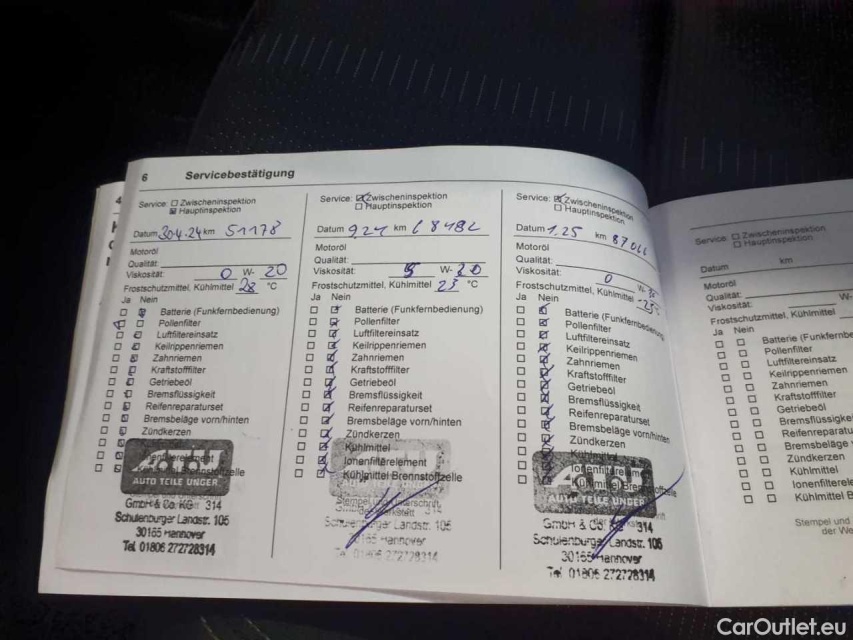 6 Servicebestätigung
Service: Zwischeninspektion
Hauptinspektion
Datum 30.4.24 km 51178
Motoröl
Qualität:
Viskosität: 0 W- 20
Frostschutzmittel, Kühlmittel 28 °C
Ja Nein
Batterie (Funkfernbedienung)
Pollenfilter
Luftfiltereinsatz
Keilrippenriemen
Zahnriemen
Kraftstofffilter
Getriebeöl
Bremsflüssigkeit
Reifenreparaturset
Bremsbeläge vorn/hinten
Zündkerzen
Ionenfilterelement
Kühlmittel Brennstoffzelle
ATU
AUTO TEILE UNGER
GmbH & Co. KG 314
Schulenburger Landstr. 105
30165 Hannover
Tel. 01806 272728314
Service: Zwischeninspektion
Hauptinspektion
Datum 9.24 km
Motoröl
Qualität:
Viskosität: W-
Frostschutzmittel, Kühlmittel 25 °C
Ja Nein
Batterie (Funkfernbedienung)
Pollenfilter
Luftfiltereinsatz
Keilrippenriemen
Zahnriemen
Kraftstofffilter
Getriebeöl
Bremsflüssigkeit
Reifenreparaturset
Bremsbeläge vorn/hinten
Zündkerzen
Kühlmittel
Ionenfilterelement
Kühlmittel Brennstoffzelle
Stempel und Unterschrift
314
Schulenburger Landstr. 105
30165 Hannover
Tel. 01806 272728314
Service: Zwischeninspektion
Hauptinspektion
Datum 1.25 km
Motoröl
Qualität:
Viskosität: 0 W-
Frostschutzmittel, Kühlmittel -25 °C
Ja Nein
Batterie (Funkfernbedienung)
Pollenfilter
Luftfiltereinsatz
Keilrippenriemen
Zahnriemen
Kraftstofffilter
Getriebeöl
Bremsflüssigkeit
Reifenreparaturset
Bremsbeläge vorn/hinten
Zündkerzen
Kühlmittel
Ionenfilterelement
Kühlmittel Brennstoffzelle
ATU
AUTO TEILE UNGER
GmbH & Co. KG 314
Schulenburger Landstr. 105
30165 Hannover
Tel. 01806 272728314
Service: Zwischeninspektion
Hauptinspektion
Datum km
Motoröl
Qualität:
Viskosität: W-
Frostschutzmittel, Kühlmittel
Ja Nein
Batterie (Funkfernbe
Pollenfilter
Luftfiltereinsatz
Keilrippenriemen
Zahnriemen
Kraftstofffilter
Getriebeöl
Bremsflüssig
Reifenreparatu
Bremsbeläge
Zündkerzen
Kühlmittel
Ionenfilterele
Kühlmittel B
Stempel und
der We
CarOutlet.eu